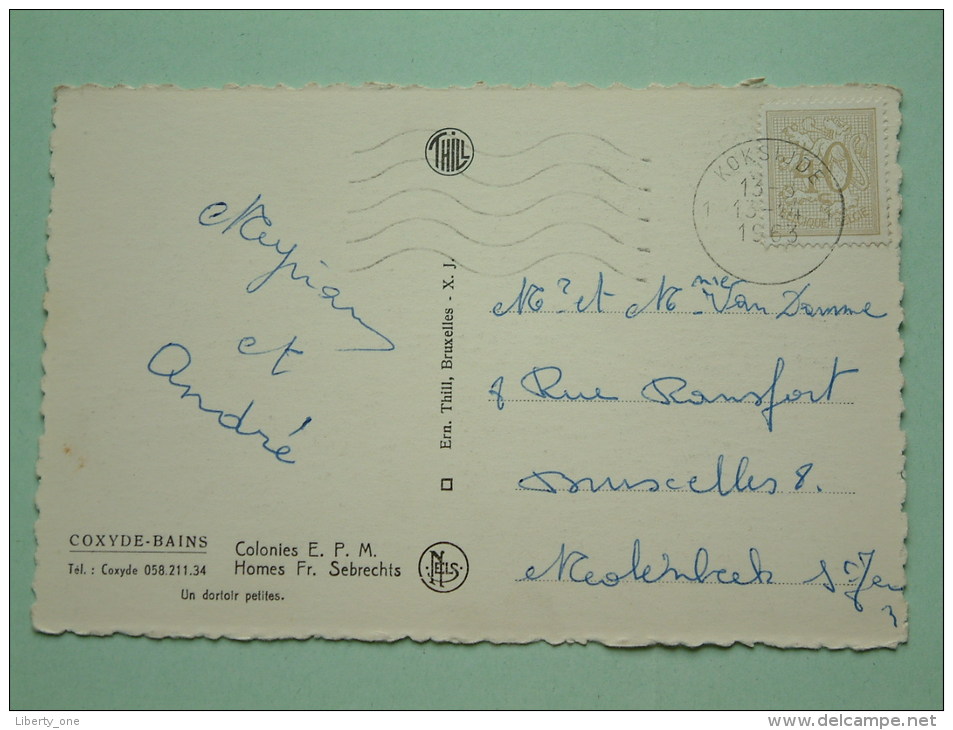 THILL
KOKSIJDE
13-9
13
1963
1 1
Myriam
et
André
Ern. Thill, Bruxelles - X. J.
Mr et Mme Van Damme
8 Rue Ransfort
Bruxelles 8.
Molenbeek St Jean
COXYDE-BAINS
Tél. : Coxyde 058.211.34
Colonies E. P. M.
Homes Fr. Sebrechts
Un dortoir petites.
NELS
Liberty_one